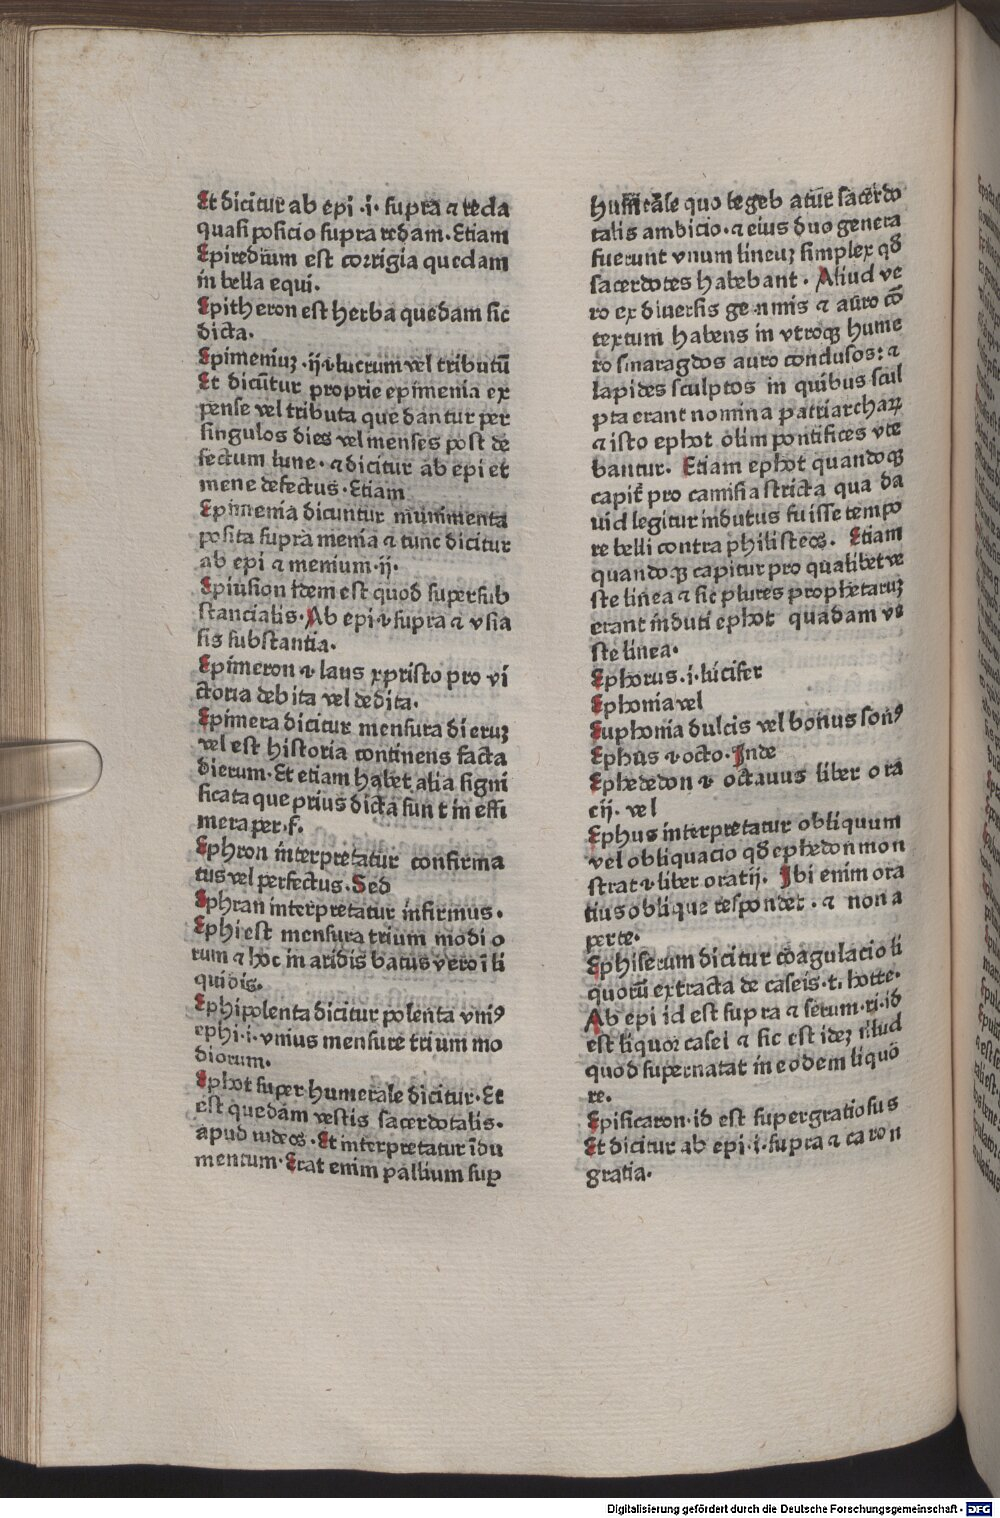 Et dicitur ab epi ·i· supra ⁊ reda
quasi posicio supra redam· Etiam
Epiredium est corrigia quedam
in bella equi·
Epitheron est herba quedam sic
dicta·
Epimeniuꝫ ·ij· lucrum vel tributū
Et dicūtur proprie epimenia ex
pense vel tributa que dantur per
singulos dies vel menses post de
fectum lune· ⁊ dicitur ab epi et
mene defectus· Etiam
Epimenia dicuntur munimenta
posita supra menia ⁊ tunc dicitur
ab epi ⁊ menium·ij·
Epiusion idem est quod supersub
stancialis· Ab epi supra ⁊ vsia
sis substantia·
Epimeron laus xpristo pro vi
ctoria debita vel dedita·
Epimera dicitur mensura dieruꝫ
vel est historia continens facta
dierum· Et etiam habet alia signi
ficata que prius dicta sunt in effi
mera per·f·
Ephron interpretatur confirma
tus vel perfectus· Sed
Ephran interpretatur infirmus·
Ephi est mensura trium modio
rum ⁊ hoc in aridis batus vero ī li
quidis·
Ephipolenta dicitur polenta vniꝰ
ephi·i· vnius mensure trium mo
diorum·
Ephot super humerale dicitur· Et
est quedam vestis sacerdotalis·
apud iudeos· Et interpretatur īdu
mentum· Erat enim pallium suꝑ
quo legebatur sacerdo
talis ambicio· ⁊ eius duo genera
fuerunt vnum lineuꝫ simplex qđ
sacerdotes habebant· Aliud ve
ro ex diuersis gemmis ⁊ auro cō
textum habens in vtroqꝫ hume
ro smaragdos auro conclusos: ⁊
lapides sculptos in quibus scul
pta erant nomina patriarchaꝝ
⁊ isto ephot olim pontifices vte
bantur· Etiam ephot quandoqꝫ
capit̄ pro camisia stricta qua da
uid legitur indutus fuisse tempo
re belli contra philisteos· Etiam
quandoqꝫ capitur pro qualibet ve
ste linea ⁊ sic plures prophetaruꝫ
erant induti ephot quadam ve
ste linea·
Ephorus·i·lucifer
Ephonia vel
Euphonia dulcis vel bonus sonꝰ
Ephus octo· Inde
Ephededon octauus liber ora
cij· vel
Ephus interpretatur obliquum
vel obliquacio qđ ephedon mon
strat liber oratij· Ibi enim ora
tius oblique respondet· ⁊ non a
perte·
Ephiserum dicitur coagulacio li
quorū extracta de caseis·t· hotte·
Ab epi id est supra ⁊ serum·ri·id
est liquor casei ⁊ sic est ideꝫ illud
quod supernatat in eodem liquo
re·
Epificaron·id est supergratiosus
Et dicitur ab epi·i·supra ⁊ caron
gratia·
Digitalisierung gefördert durch die Deutsche Forschungsgemeinschaft - DFG